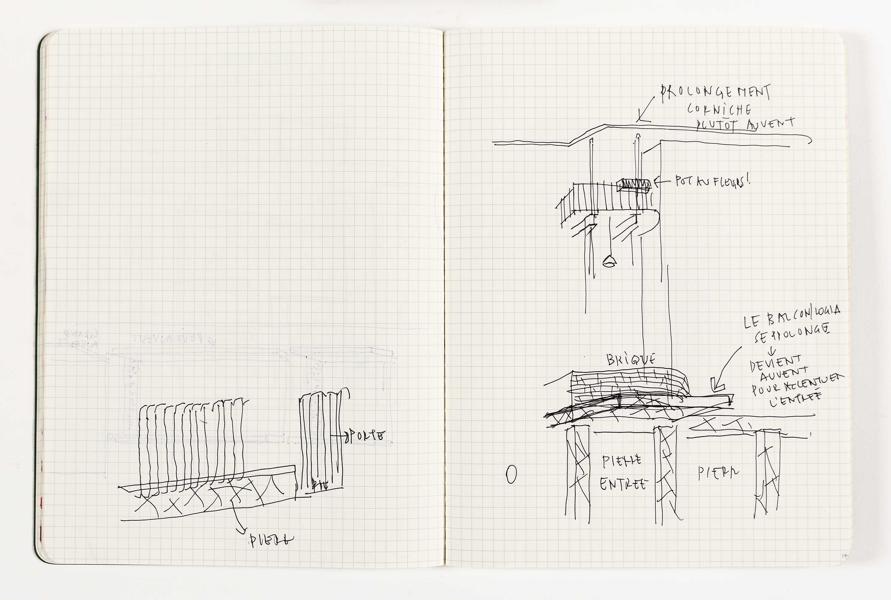 PROLONGEMENT
CORNICHE
PLUTÔT AUVENT
POT AU FLEURS!
LE BALCON/LOGIA
SE PROLONGE
DEVIENT
AUVENT
POUR ACCENTUER
L'ENTRÉE
BRIQUE
PIERRE
ENTREE
PIERR
PORTE
PIERR